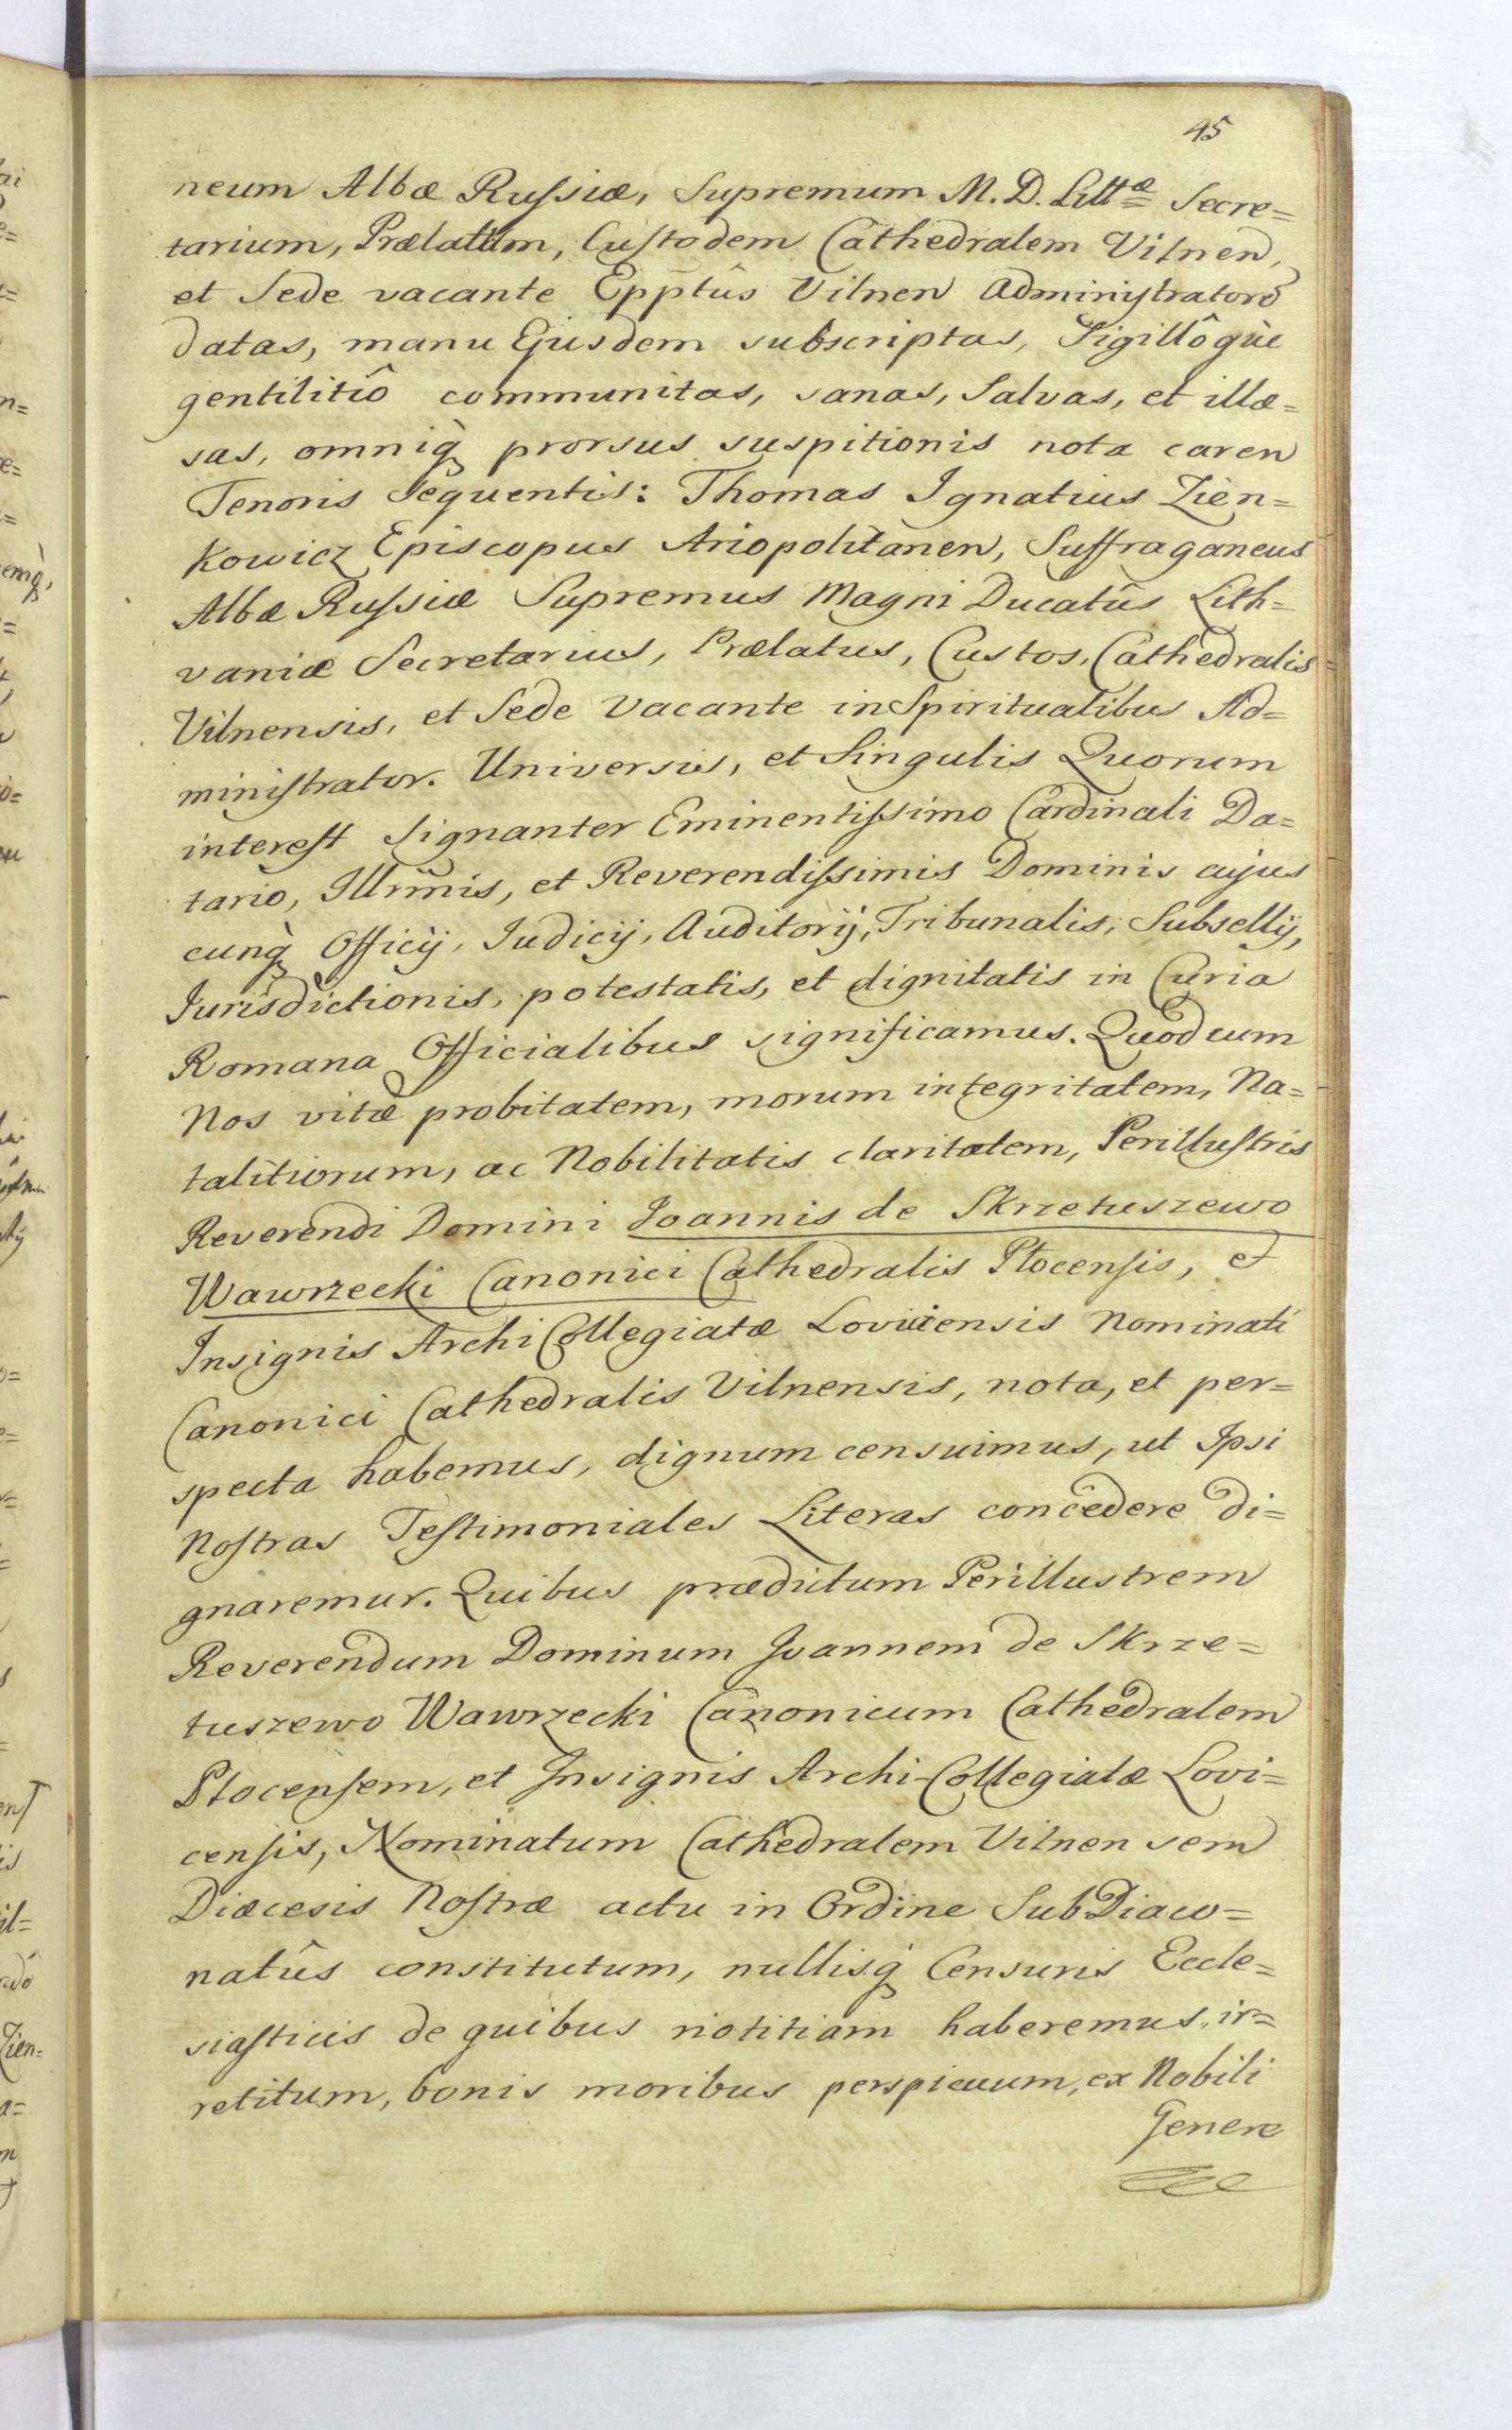 45
neum Albæ Russiæ, Supremum M. D. Littæ Secre=
tarium, Prælatum, Custodem Cathedralem Vilnen,
et Sede vacante Epptûs Vilnen Administratorẽ
datas, manu Ejusdem subscriptas, Sigillôque
gentilitiô communitas, sanas, Salvas, et illæ=
sas, omniq̀ prorsus suspitionis nota caren
Tenoris Sequentis: Thomas Ignatius Zien=
kowicz Episcopus Ariopolitanen, Suffraganeus
Albæ Russiæ Supremus Magni Ducatûs Lith=
vaniæ Secretarius, Prælatus, Custos, Cathedralis
Vilnensis, et Sede vacante in Spiritualibus Ad=
ministrator. Universis, et Singulis Quorum
interest Signanter Eminentissimo Cardinali Da=
tario, Illrm̃is, et Reverendissimis Dominis cujus
cunq̀ Officij, Iudicij, Auditorij, Tribunalis, Subsellij,
Jurisdictionis, potestatis, et dignitatis in Curia
Romana Officialibus significamus. Quod cum
Nos vitæ probitatem, morum integritatem, Na=
talitiorum, ac Nobilitatis claritatem, Perillustris
Reverendi Domini Joannis de Skrzetuszewo
Wawrzecki Canonici Cathedralis Plocensis, et
Insignis Archi Collegiatæ Loviciensis Nominati
Canonici Cathedralis Vilnensis, nota, et per=
specta habemus, dignum censuimus, ut Ipsi
Nostras Testimoniales Literas concedere di=
gnaremur. Quibus prædictum Perillustrem
Reverendum Dominum Joannem de Skrze=
tuszewo Wawrzecki Canonicum Cathedralem
Plocensem, et Insignis Archi-Collegiatæ Lovi=
censis, Nominatum Cathedralem Vilnen sem
Diæcesis Nostræ actu in Ordine SubDiaco=
natûs constitutum, nullisq̀ Censuris Eccle=
siasticis de quibus notitiam haberemus, ir=
retitum, bonis moribus perspicuum, ex Nobili
Genere